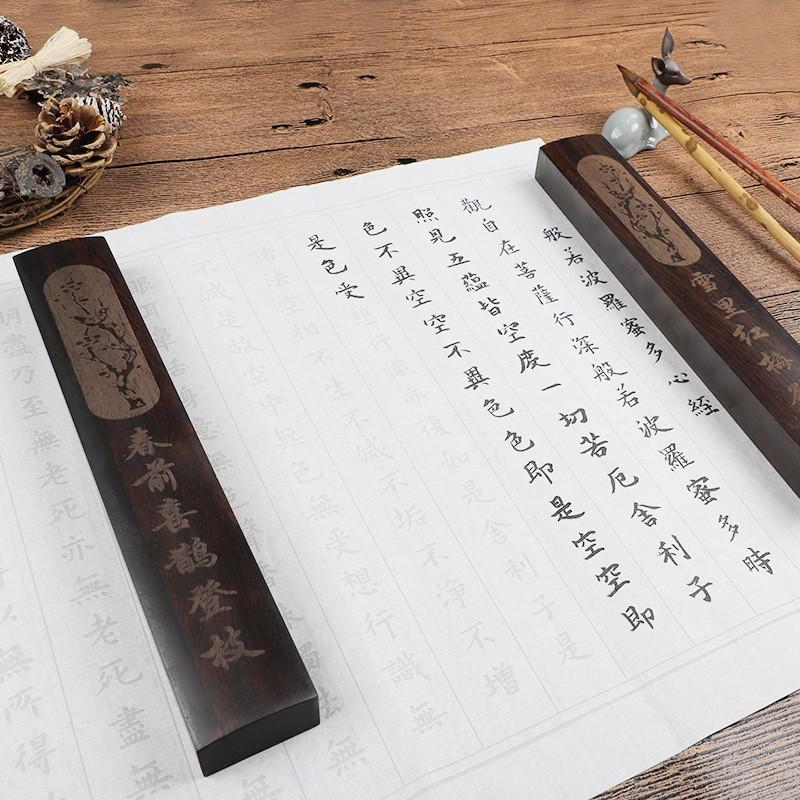 雪里红梅
般若波羅蜜多心經
觀自在菩薩行深般若波羅蜜多時
照見五蘊皆空度一切苦厄舍利子
色不異空空不異色色即是空空即
是色受想行識亦復如是舍利子是
諸法空相不生不滅不垢不淨不增
不減是故空中無色無受想行識無
眼耳鼻舌
法無
春前喜鵲登枝
明盡乃至無老死亦無老死盡無
無所得